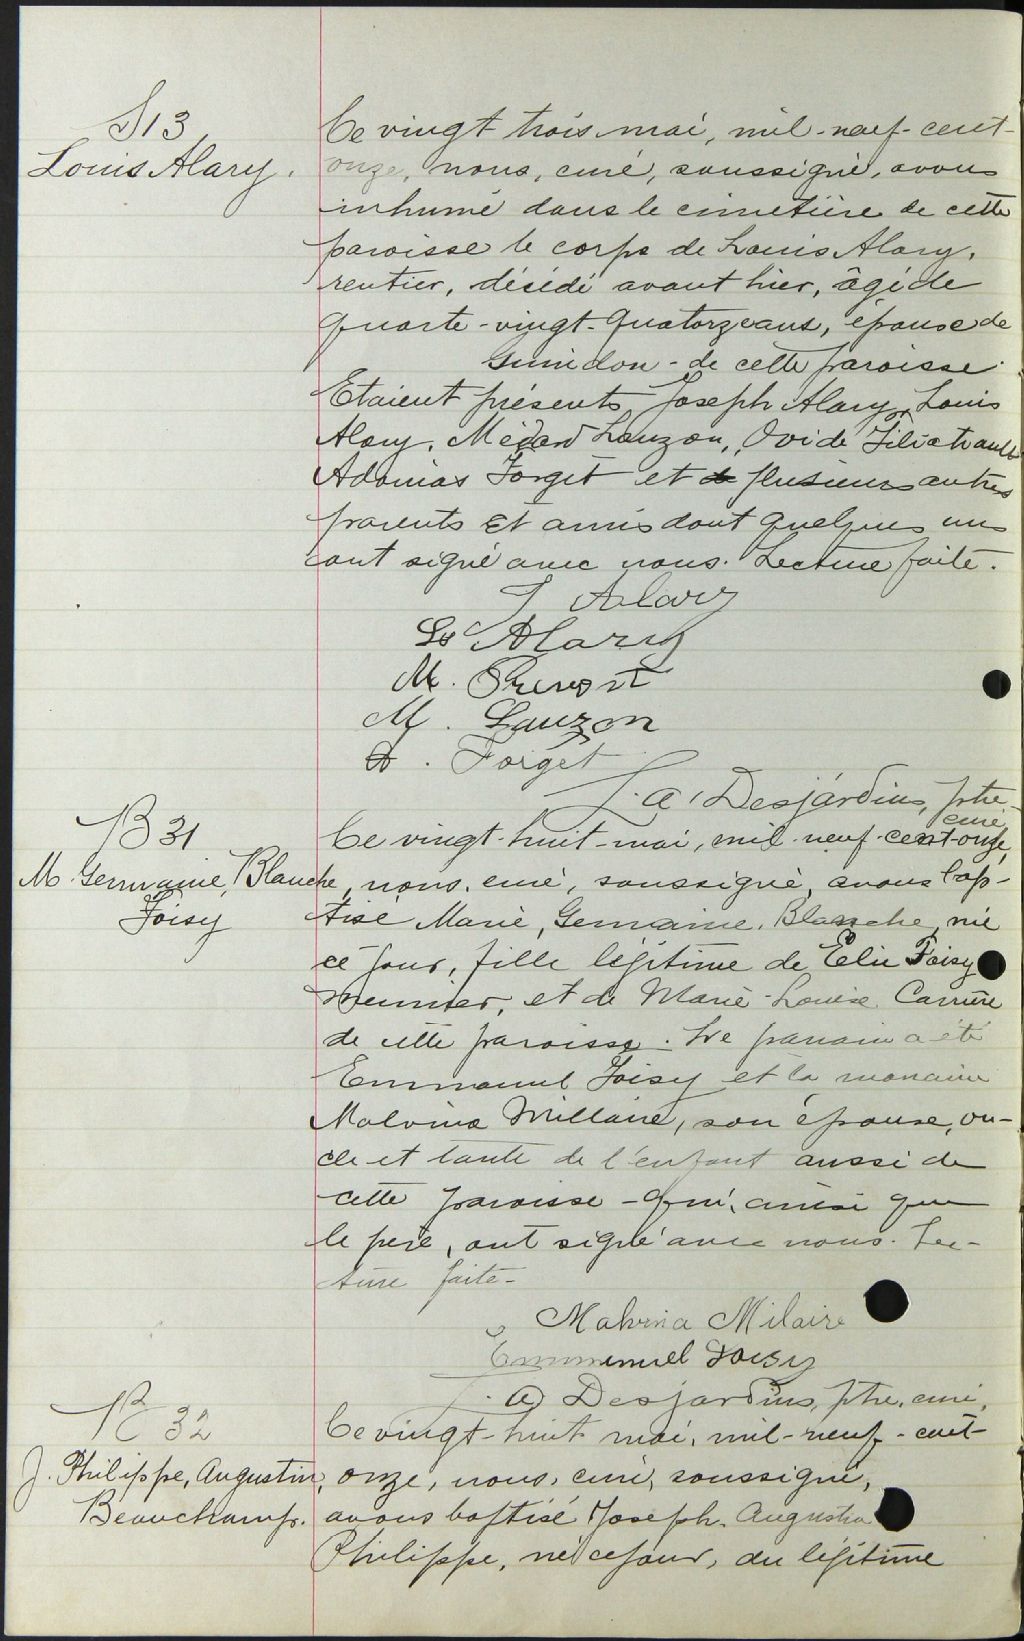 S 13
Louis Alary.
Ce vingt trois mai, mil-neuf-cent-
onze, nous, curé, soussigné, avons
inhumé dans le cimetière de cette
paroisse le corps de Louis Alary,
rentier, décédé avant hier, âgé de
quatre-vingt-quatorze ans, époux de
Guindon - de cette paroisse.
Etaient présents Joseph Alary, Louis
Alary, Médard Lauzon, Ovide Filiatrault
Adonias Forget et plusieurs autres
parents et amis dont quelques uns
ont signé avec nous. Lecture faite.
J Alary
Ls Alary
M. Prevost
M. Lauzon
A. Forget
J. A. Desjardins, ptre
curé
B 31
M. Germaine, Blanche
Foisy
Ce vingt-huit-mai, mil-neuf-cent-onze,
nous, curé, soussigné, avons bap-
tisé Marie, Germaine, Blanche, née
ce jour, fille légitime de Elie Foisy
meunier, et de Marie-Louise Carrière
de cette paroisse. Le parrain a été
Emmanuel Foisy et la marraine
Malvina Millaire, son épouse, on-
cle et tante de l'enfant aussi de
cette paroisse - qui, ainsi que
le père, ont signé avec nous. Lec-
ture faite-
Malvina Milaire
Emmenuel Foisy
J. A Desjardins, ptre, curé,
B 32
J. Philippe, Augustin,
Beauchamp.
Ce vingt-huit mai, mil-neuf-cent-
onze, nous, curé, soussigné,
avons baptisé Joseph, Augustin
Philippe, né ce jour, du légitime